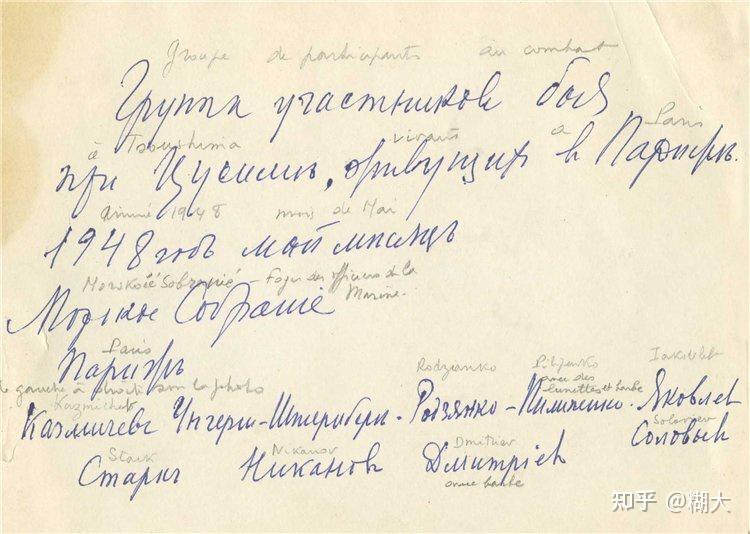 Groupe de participants au combat
Группа участниковъ боя
à Tsoushima vivants à Paris
при Цусимѣ, живущих в Парижѣ.
année 1948 mois de Mai
1948 годъ май мѣсяцъ
Morskoïé Sobranié - Foyer des officiers de la Marine.
Морское Собраніе
Paris
Парижъ
de gauche à droite sur la photo
Kazmichef Rodzianko Piljenko avec des lunettes et barbe Iakovlef
Казмичевъ Унгернъ-Штернбергъ - Родзянко - Пилженко. Яковлев
Soloviev
Соловьев
Stark Nikanov Dmitriev
Старкъ Никанов Дмитріев
avec barbe
知乎 @糊大